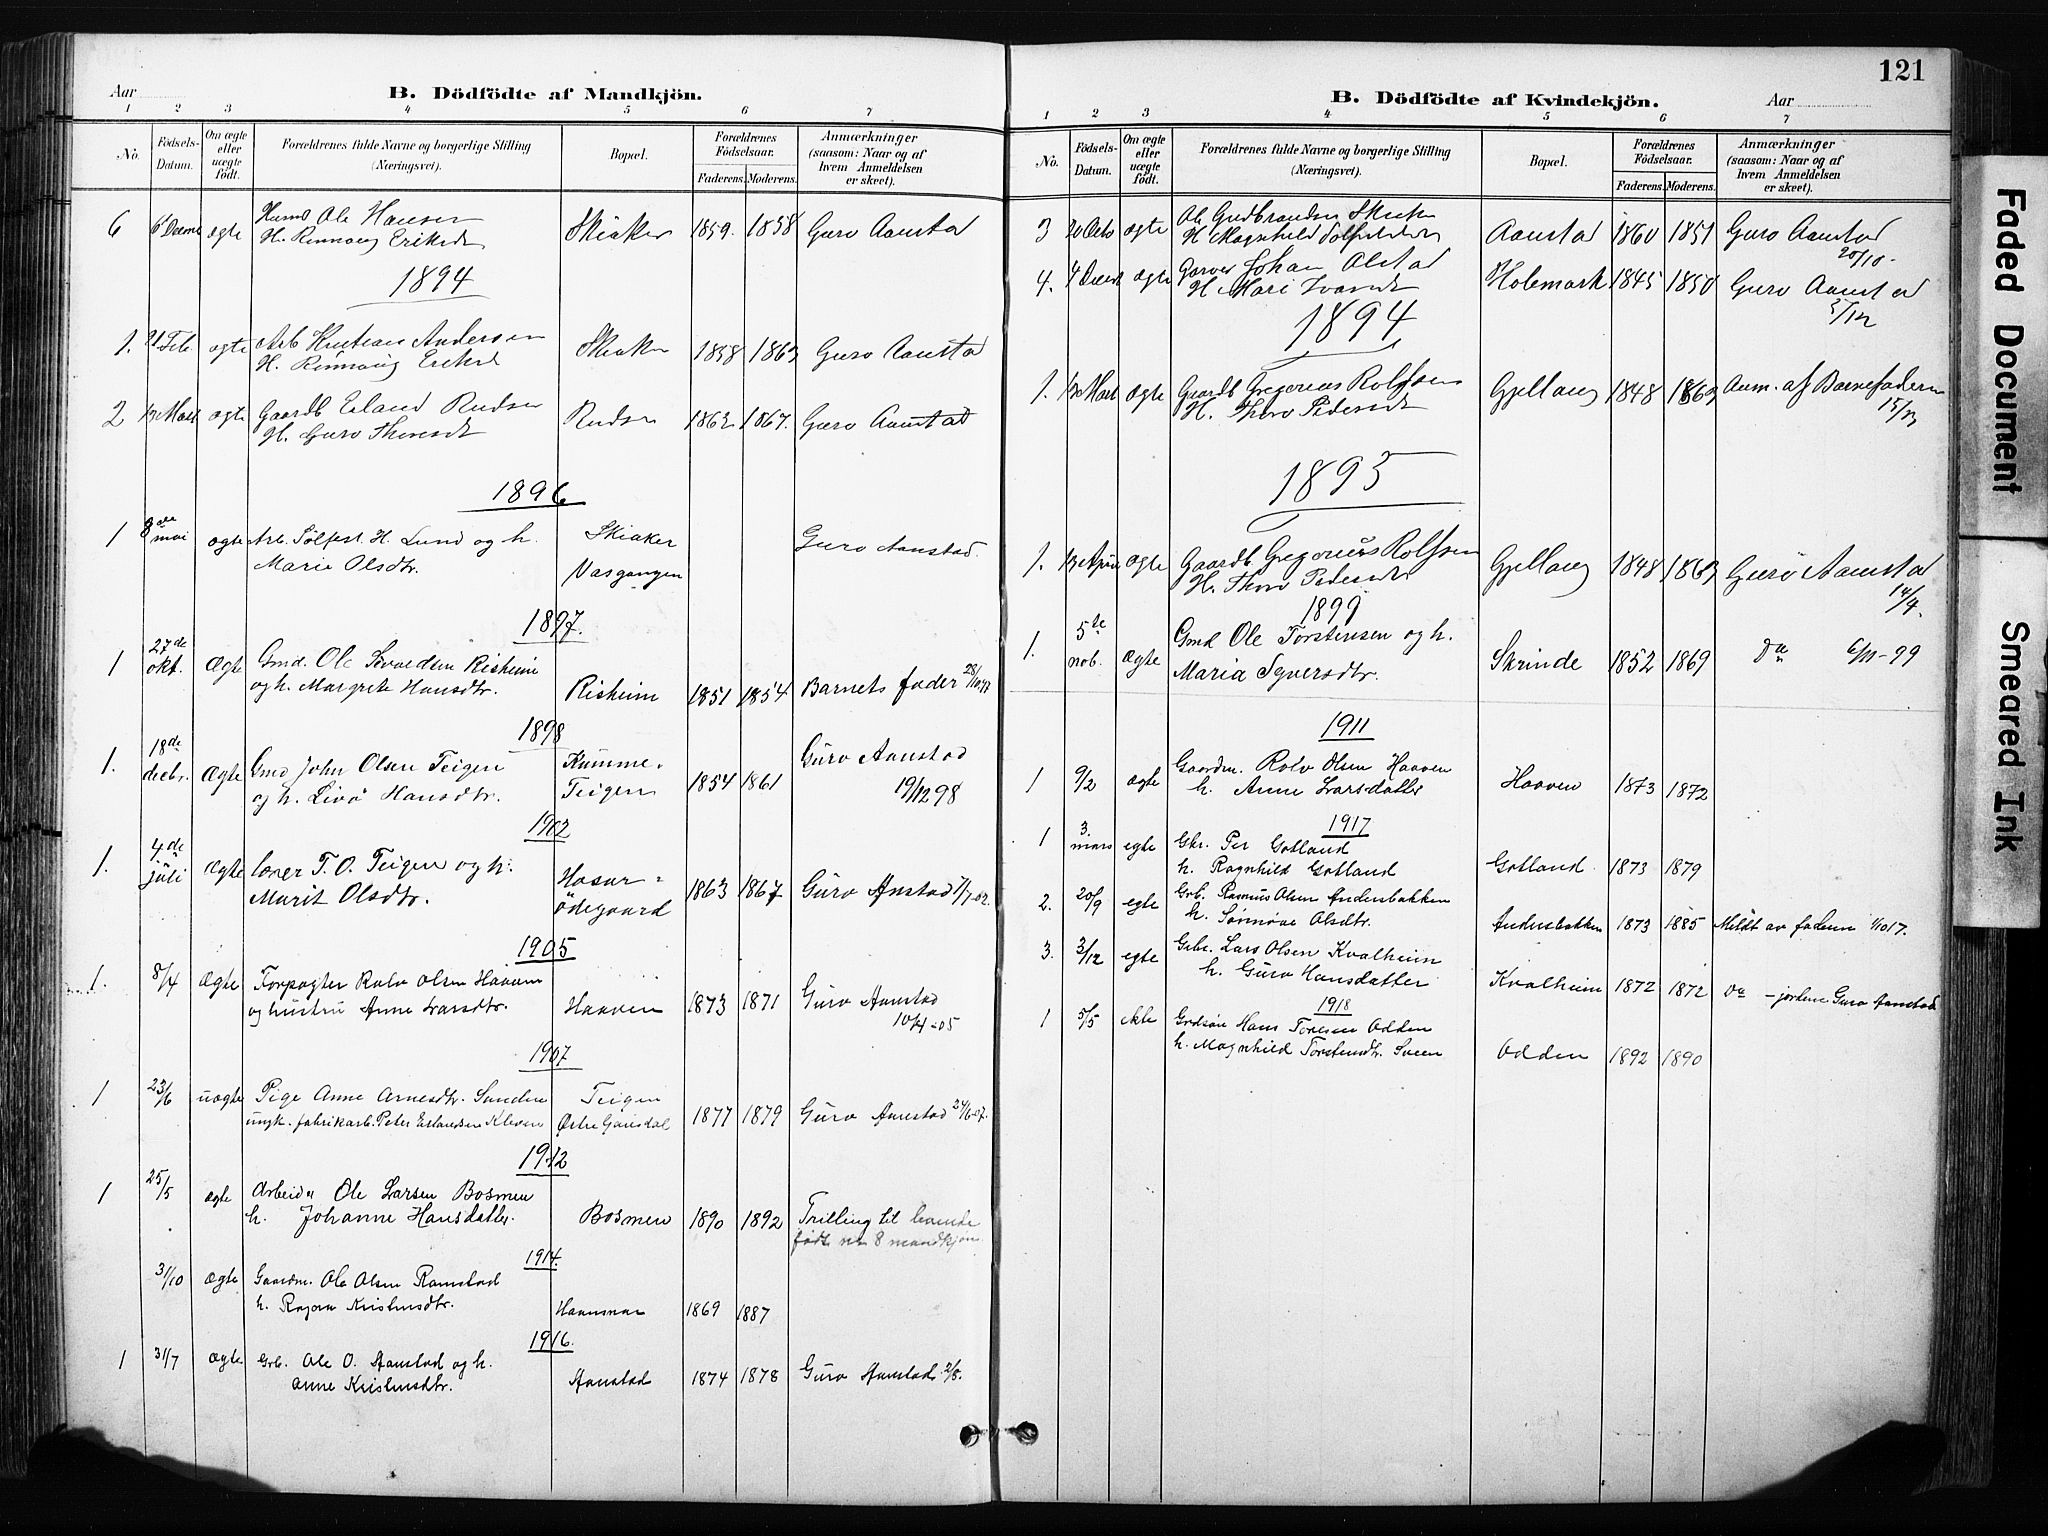 121
Aar
B. Dödfödte af Mandkjön.
1 2 3 4 5 6 7
No. Födsels-Datum. Om ægte eller uægte födt. Forældrenes fulde Navne og borgerlige Stilling (Næringsvei). Bopæl. Forældrenes Födselsaar. Faderens. Moderens. Anmærkninger (saasom: Naar og af hvem Anmeldelsen er skeet).
6 ægte Ole Hansen Skiaker 1859. 1858 Guro Aanstad
H. Rønnaug Eriksd
1894
1. 21 Feb. ægte Arb Andersen Skiaker 1858 1863 Guro Aanstad
H. Rønnaug Eriksd
2 13 Mart ægte Gaardb Erland Rudsen Rudsen 1862 1867. Guro Aanstad
H. Guro
1896
1 8de mai ægte Arb. Sølfest H. Lund og h. Skiaker Guro Aanstad.
Marie Olsdtr. Vasgangen
1897.
1 27de okt. Ægte Gmd. Ole Risheim
og h. Margrete Hansdtr. Risheim 1851 1854 Barnets fader 28/10 97
1898
1. 18de decbr. Ægte Gmd John Olsen Teigen Kumme- 1854 1861 Guro Aanstad
og h. Livo Hansdtr. Teigen 19/12 98
1902
1. 4de juli Ægte T. O. Teigen og h. Hosar- 1863 1867 Guro Anstad 7/7-02.
Marit Olsdtr. ødegaard
1905
1. 8/4 Ægte Forpagter Rolv Olsen Haaven
og hustru Anne Larsdtr. Haaven 1873 1871 Guro Aanstad
10/4-05
1907
1 23/6 uægte Pige Anne Arnesdtr. Sunden Teigen
ungk. fabrikarb. Peter Erlandsen Kleven Østre Gausdal 1877 1879 Guro Aanstad 24/6-07.
1912
1 25/5 ægte Arbeider Ole Larsen Bosmen
h. Johanne Hansdatter. Bosmen 1890 1892 Trilling til levende
født no 8 mandkjøn
1914.
31/10 Ægte Gaardm. Ole Olsen Ramstad
h. Kristensdtr. 1869 1887
1916.
1 31/7 ægte Grb. Ole O. Aanstad og h.
Anne Kristensdtr. Aanstad 1874 1878 Guro Aanstad. 2/8.
B. Dödfödte af Kvindekjön.
Aar
1 2 3 4 5 6 7
No. Födsels-Datum. Om ægte eller uægte födt. Forældrenes fulde Navne og borgerlige Stilling (Næringsvei). Bopæl. Forældrenes Födselsaar. Faderens. Moderens. Anmærkninger (saasom: Naar og af hvem Anmeldelsen er skeet).
3 20 Octo ægte Ole Gudbrandsen Aanstad 1860 1851 Guro Aanstad
H Magnhild 20/10.
4. ægte Johan Alstad Holemark 1845 1850 Guro Aanstad
H Mari
1894
1. ægte Gaardb Gregorius Rolfsen Gjellaug 1848 1863 Anm. af Barnefaderen
H. Thora Pedersdt
1895
1. 13 April ægte Gaardb Gregorius Rolfsen Gjellaug 1848 1863 Guro Aanstad
H. Thora Pedersdtr 14/4.
1899
1. 5te nob. Ægte Gmd Ole Torstensen og h. Skrinde 1852 1869 Do 6/11-99
Maria Syversdtr.
1911
1 9/2 ægte Gaardm. Rolv Olsen Haaven Haaven 1873 1872
h. Anne Larsdatter
1917
1 3. mars egte Gbr. Per Gotland Gotland 1873 1879
h. Ragnhild Gotland
2. 20/9 egte Grb. Rasmus Olsen Andersbakken
h. Sønnøve Olsdtr. Andersbakken 1873 1885 Meldt av faderen 1/10 17.
3. 3/12 egte Gbr. Lars Olsen Kvalheim
h. Guro Hansdatter Kvalheim 1872 1872 Do - jordem Guro Aanstad
1918
1 5/5 ekte Grdsøn Hans Toresen Odden
h. Magnhild Torstensdtr. Sveen Odden 1892 1890
Faded Document
Smeared Ink